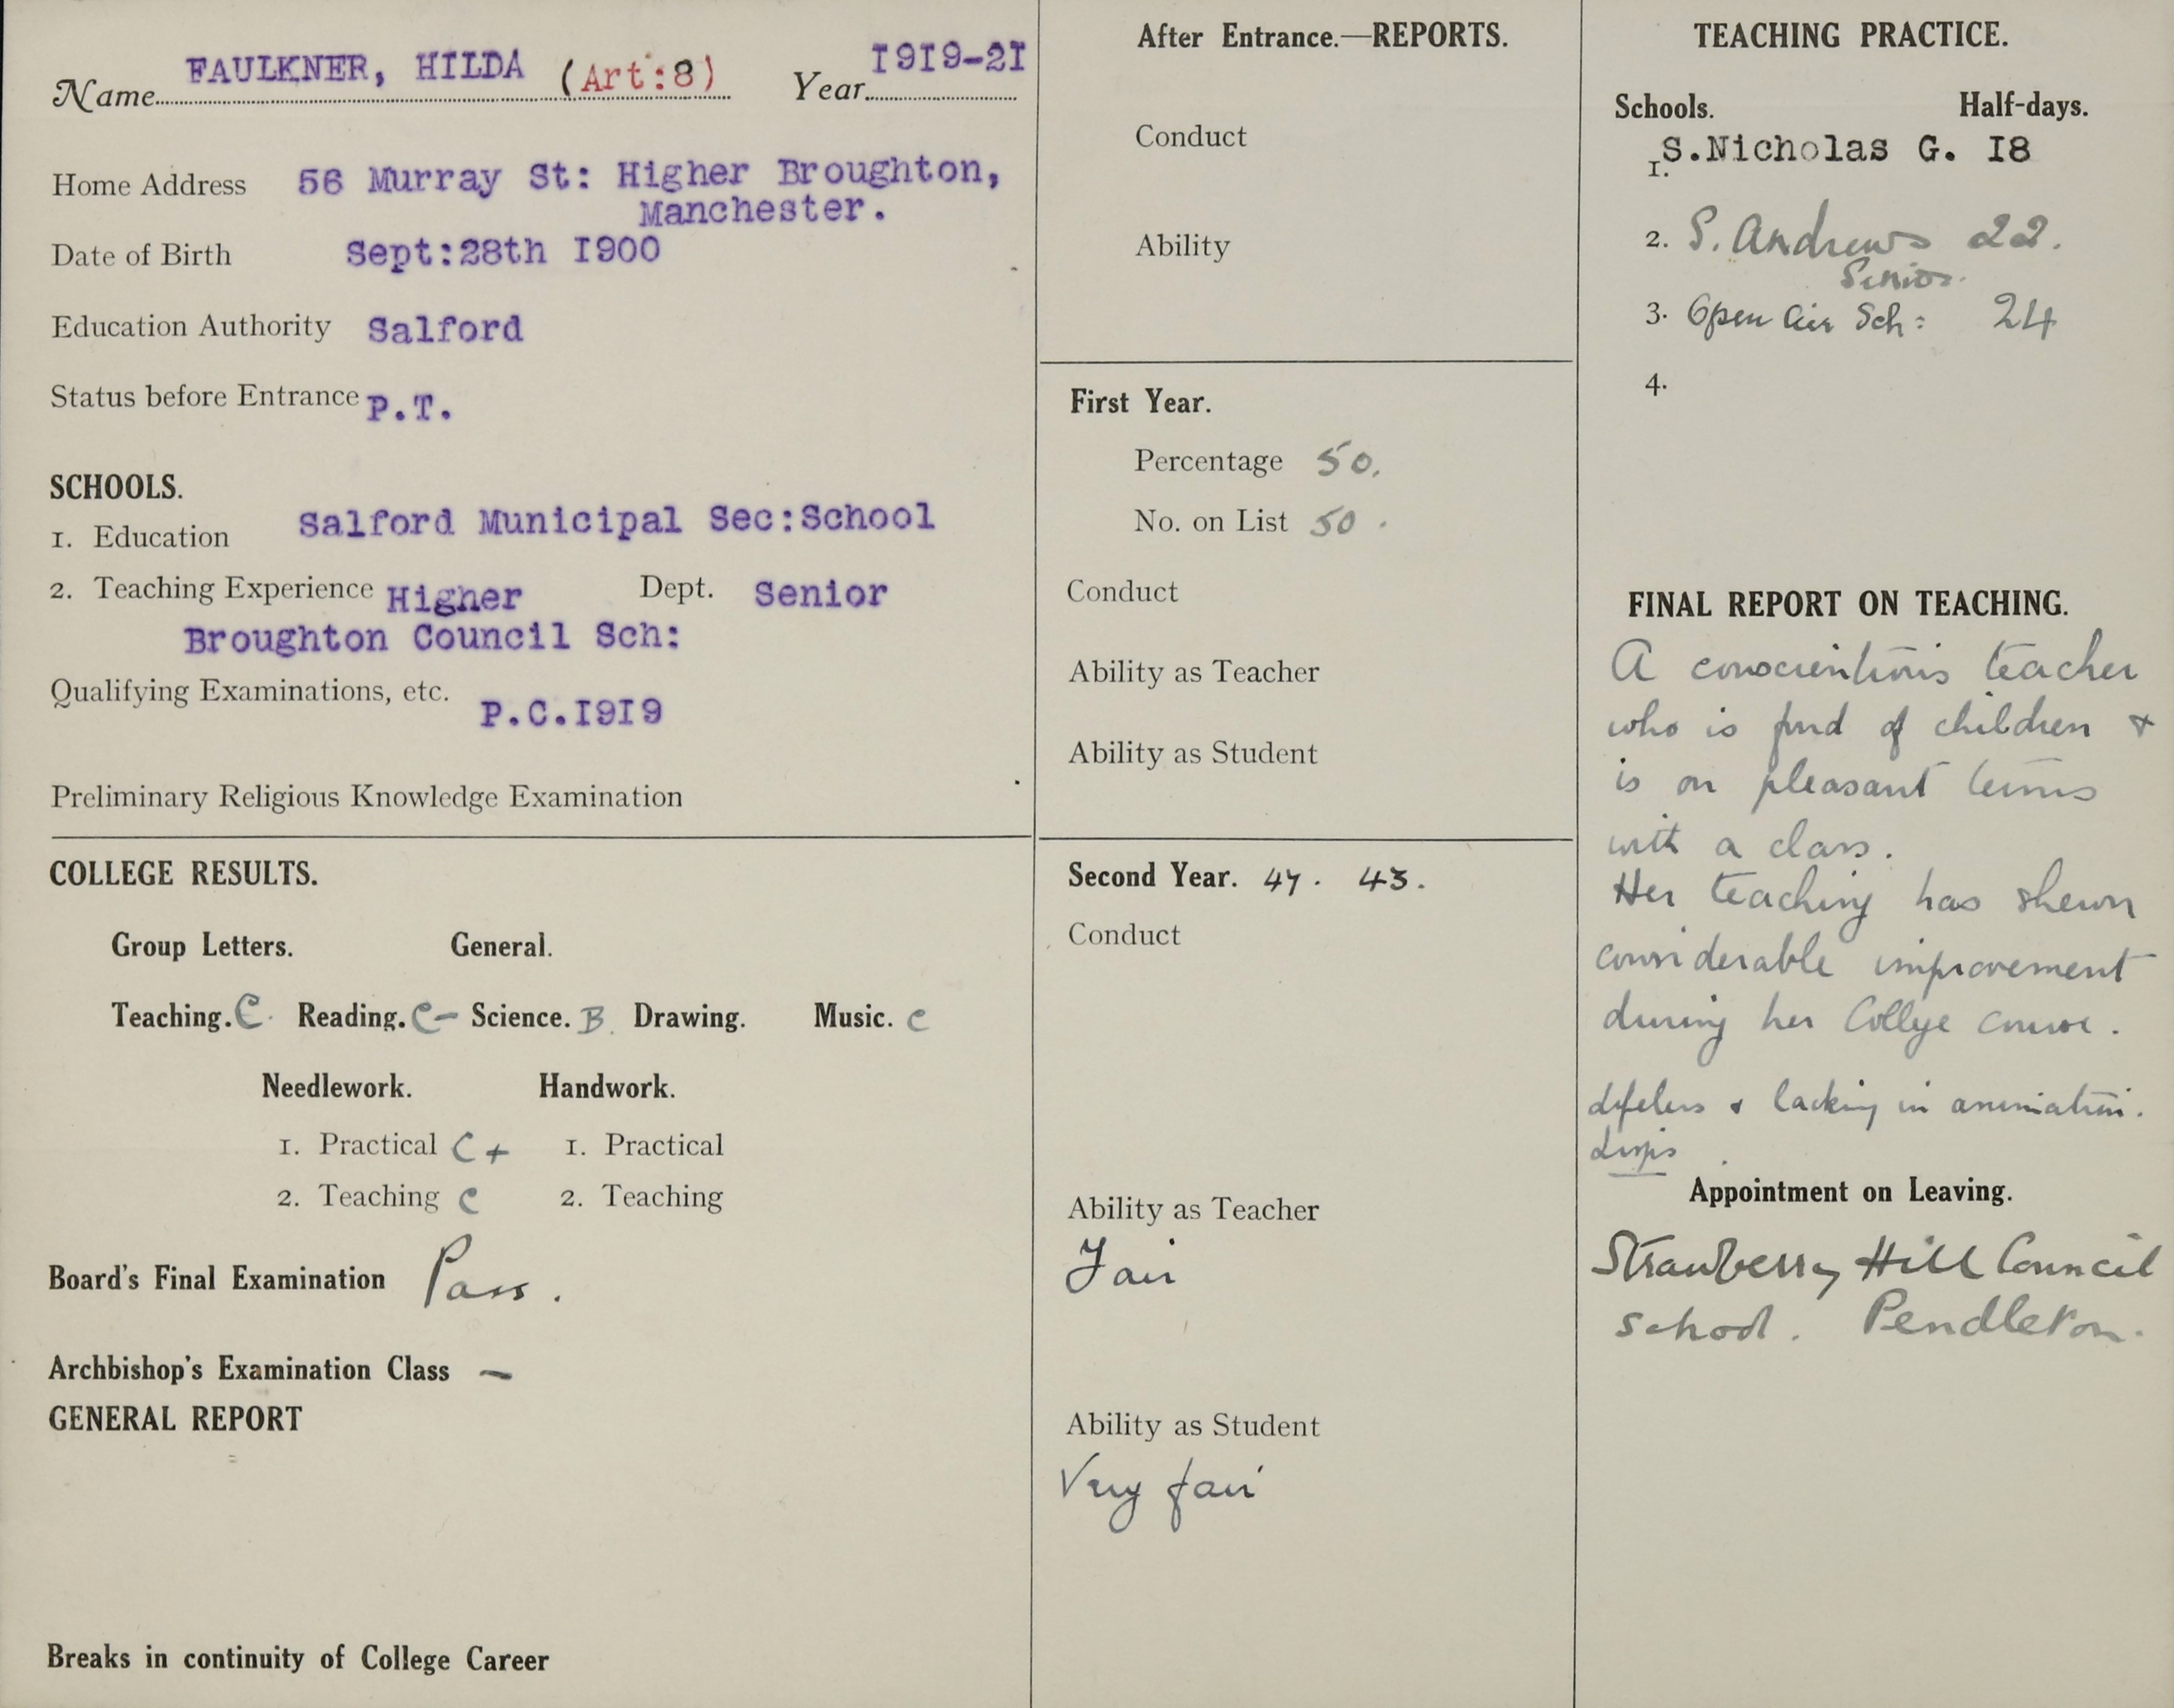 Name FAULKNER, HILDA (Art:8) Year 1919-21
Home Address 56 Murray St: Higher Broughton,
Manchester.
Date of Birth Sept:28th 1900
Education Authority Salford
Status before Entrance P.T.
SCHOOLS.
1. Education Salford Municipal Sec:School
2. Teaching Experience Higher Dept. Senior
Broughton Council Sch:
Qualifying Examinations, etc. P.C.1919
Preliminary Religious Knowledge Examination
COLLEGE RESULTS.
Group Letters. General.
Teaching. C. Reading. C- Science. B. Drawing. Music. C
Needlework. Handwork.
1. Practical C+ 1. Practical
2. Teaching C 2. Teaching
Board's Final Examination Pass.
Archbishop's Examination Class —
GENERAL REPORT
Breaks in continuity of College Career
After Entrance.—REPORTS.
Conduct
Ability
First Year.
Percentage 50.
No. on List 50.
Conduct
Ability as Teacher
Ability as Student
Second Year. 47. 43.
Conduct
Ability as Teacher
Fair
Ability as Student
Very fair
TEACHING PRACTICE.
Schools. Half-days.
1. S.Nicholas G. 18
2. S. Andrews 22.
Senior.
3. Open Air Sch: 24
4.
FINAL REPORT ON TEACHING.
A conscientious teacher
who is fond of children &
is on pleasant terms
with a class.
Her teaching has shewn
considerable improvement
during her College course.
& lacking in animation.
Appointment on Leaving.
Strawberry Hill Council
school. Pendleton.